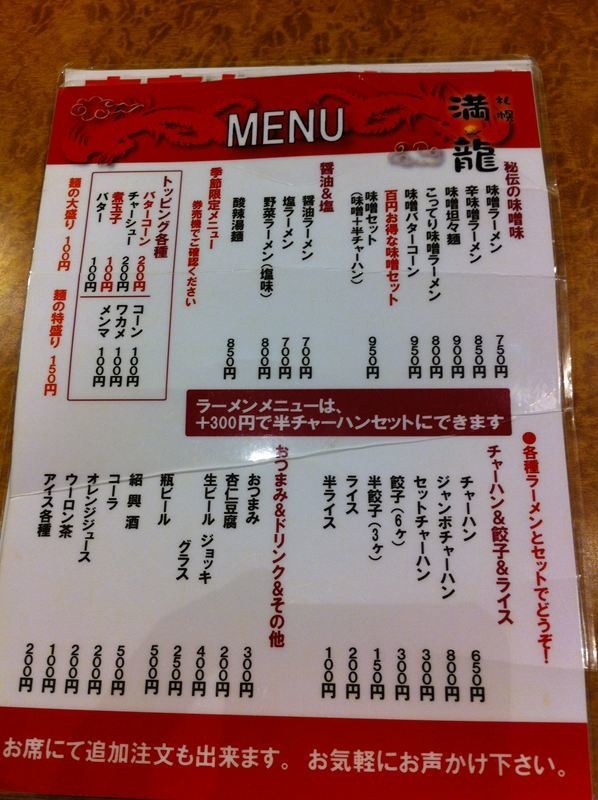 MENU
札幌
満龍
秘伝の味噌味
味噌ラーメン 750円
辛味噌ラーメン 850円
味噌坦々麺 900円
こってり味噌ラーメン 800円
味噌バターコーン 950円
百円お得な味噌セット
味噌セット 950円
(味噌+半チャーハン)
醤油&塩
醤油ラーメン 700円
塩ラーメン 700円
野菜ラーメン(塩味) 800円
酸辣湯麺 850円
季節限定メニュー
券売機でご確認ください
トッピング各種
バターコーン 200円
チャーシュー 200円
煮玉子 100円
バター 100円
コーン 100円
ワカメ 100円
メンマ 100円
麺の大盛り 100円
麺の特盛り 150円
ラーメンメニューは、
+300円で半チャーハンセットにできます
●各種ラーメンとセットでどうぞ!
チャーハン&餃子&ライス
チャーハン 650円
ジャンボチャーハン 800円
セットチャーハン 300円
餃子(6ヶ) 300円
半餃子(3ヶ) 150円
ライス 200円
半ライス 100円
おつまみ&ドリンク&その他
おつまみ 300円
杏仁豆腐 200円
生ビール ジョッキ 400円
グラス 250円
瓶ビール 500円
紹興酒 500円
コーラ 200円
オレンジジュース 200円
ウーロン茶 100円
アイス各種 200円
お席にて追加注文も出来ます。お気軽にお声かけ下さい。